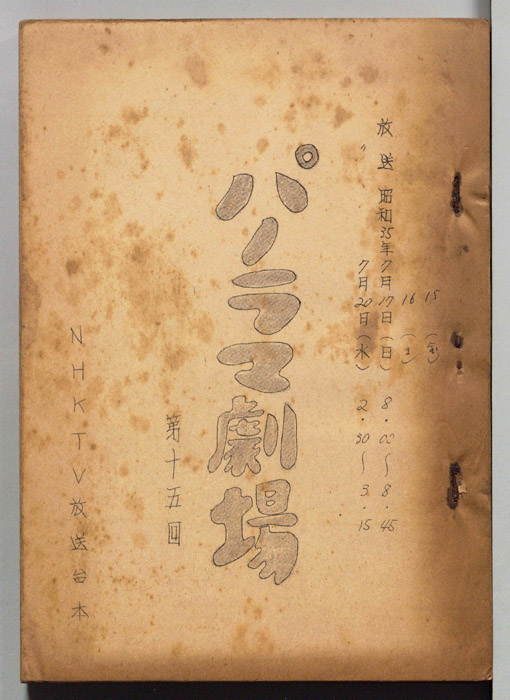 15 (金)
16 (土)
放送 昭和35年7月17日(日) 8.00〜8.45
〃 7月20日(水) 2.30〜3.15
パノラマ劇場
第十五回
NHKTV放送台本